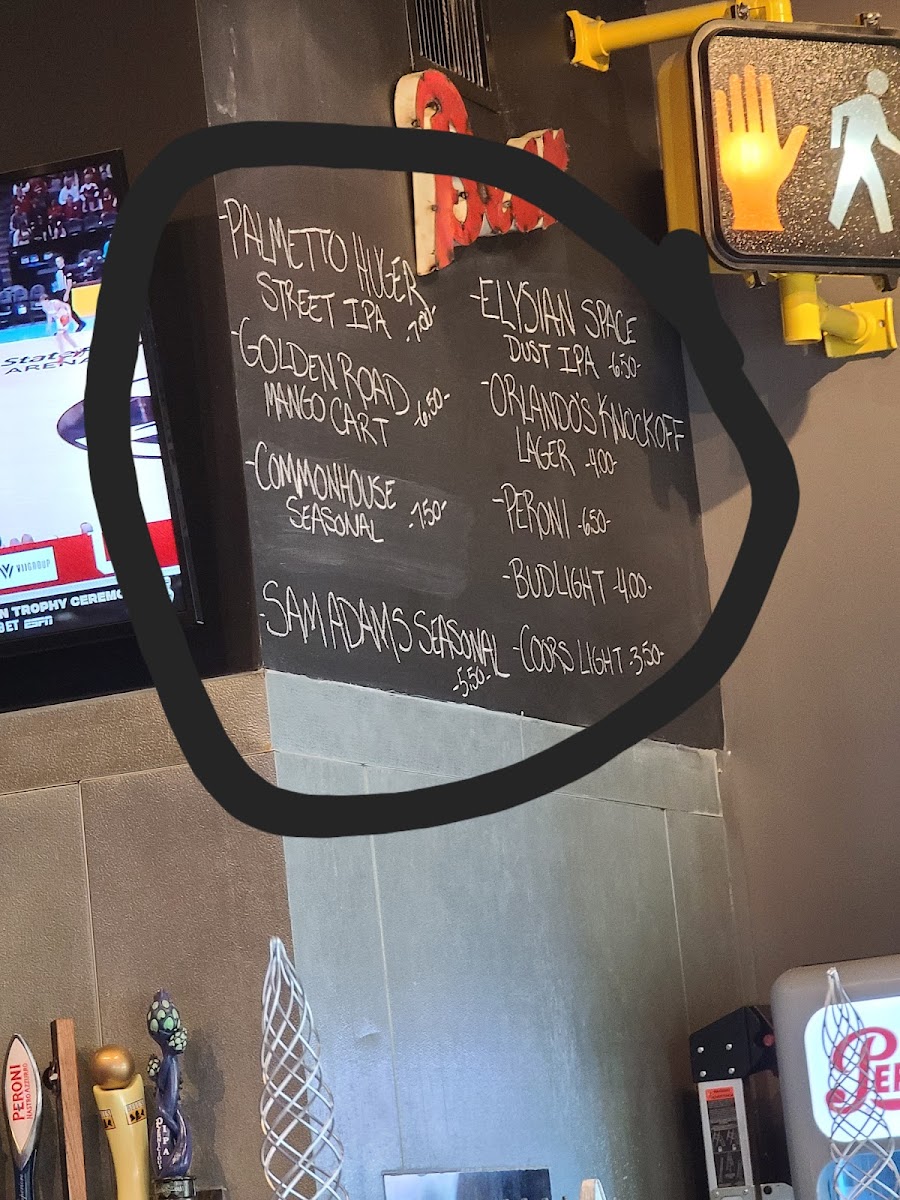 Beer
-PALMETTO HUGER
STREET IPA -7.00-
-GOLDEN ROAD
MANGO CART -6.50-
-COMMONHOUSE
SEASONAL -7.50-
-SAM ADAMS SEASONAL
-5.50-
-ELYSIAN SPACE
DUST IPA -6.50-
-ORLANDO'S KNOCKOFF
LAGER -4.00-
-PERONI -6.50-
-BUDLIGHT -4.00-
-COORS LIGHT -3.50-
State
ARENA
VIIGROUP
N TROPHY CEREMO
BET ESPN
PERONI
NASTRO AZZURRO
IPA